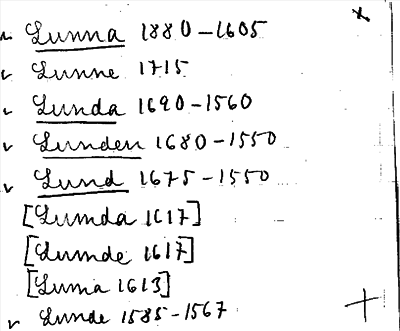 Lunna 1880-1605
Lunne 1715
Lunda 1690-1560
Lunden 1680-1550
Lund 1675-1550
[Lumda 1617]
[Lumde 1617]
[Luma 1613]
Lunde 1585-1567